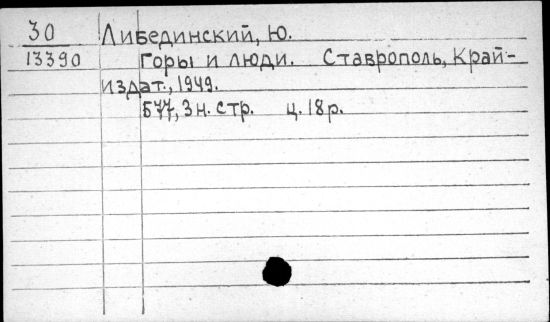 30 Либединский, Ю.
13390 Горы и люди. Ставрополь, Край-
издат., 1949.
577, 3 н. стр. ц. 18 р.